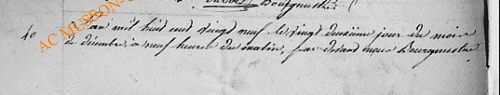 Dubois Bourgmestre
40 L'an mil huit cent vingt neuf le vingt deuxième jour du mois
de décembre à neuf heures du matin, par devant nous Bourgmestre
AC MUSSON